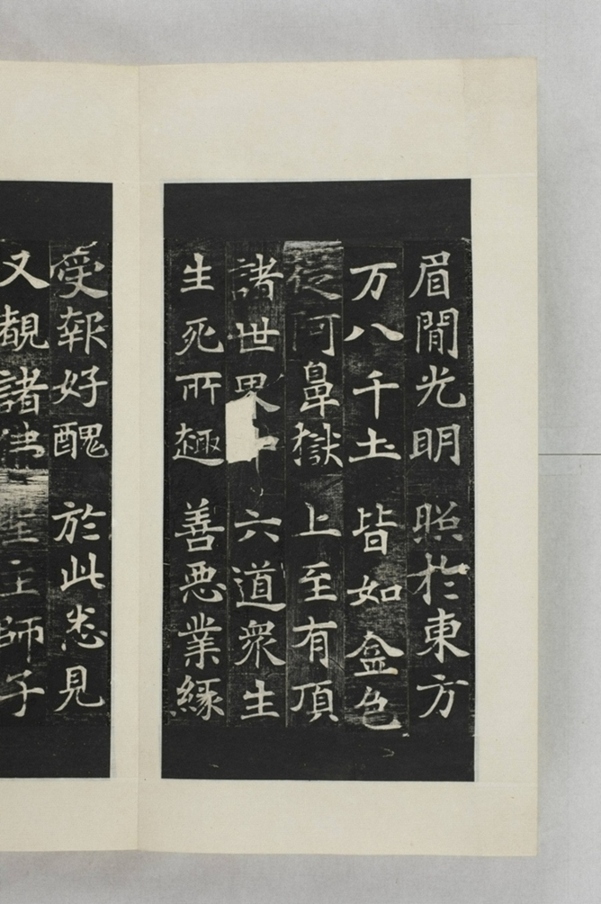 眉閒光明 照於東方
万八千土 皆如金色
從阿鼻獄 上至有頂
諸世界中 六道衆生
生死所趣 善惡業緣
受報好醜 於此悉見
又覩諸佛 聖主師子